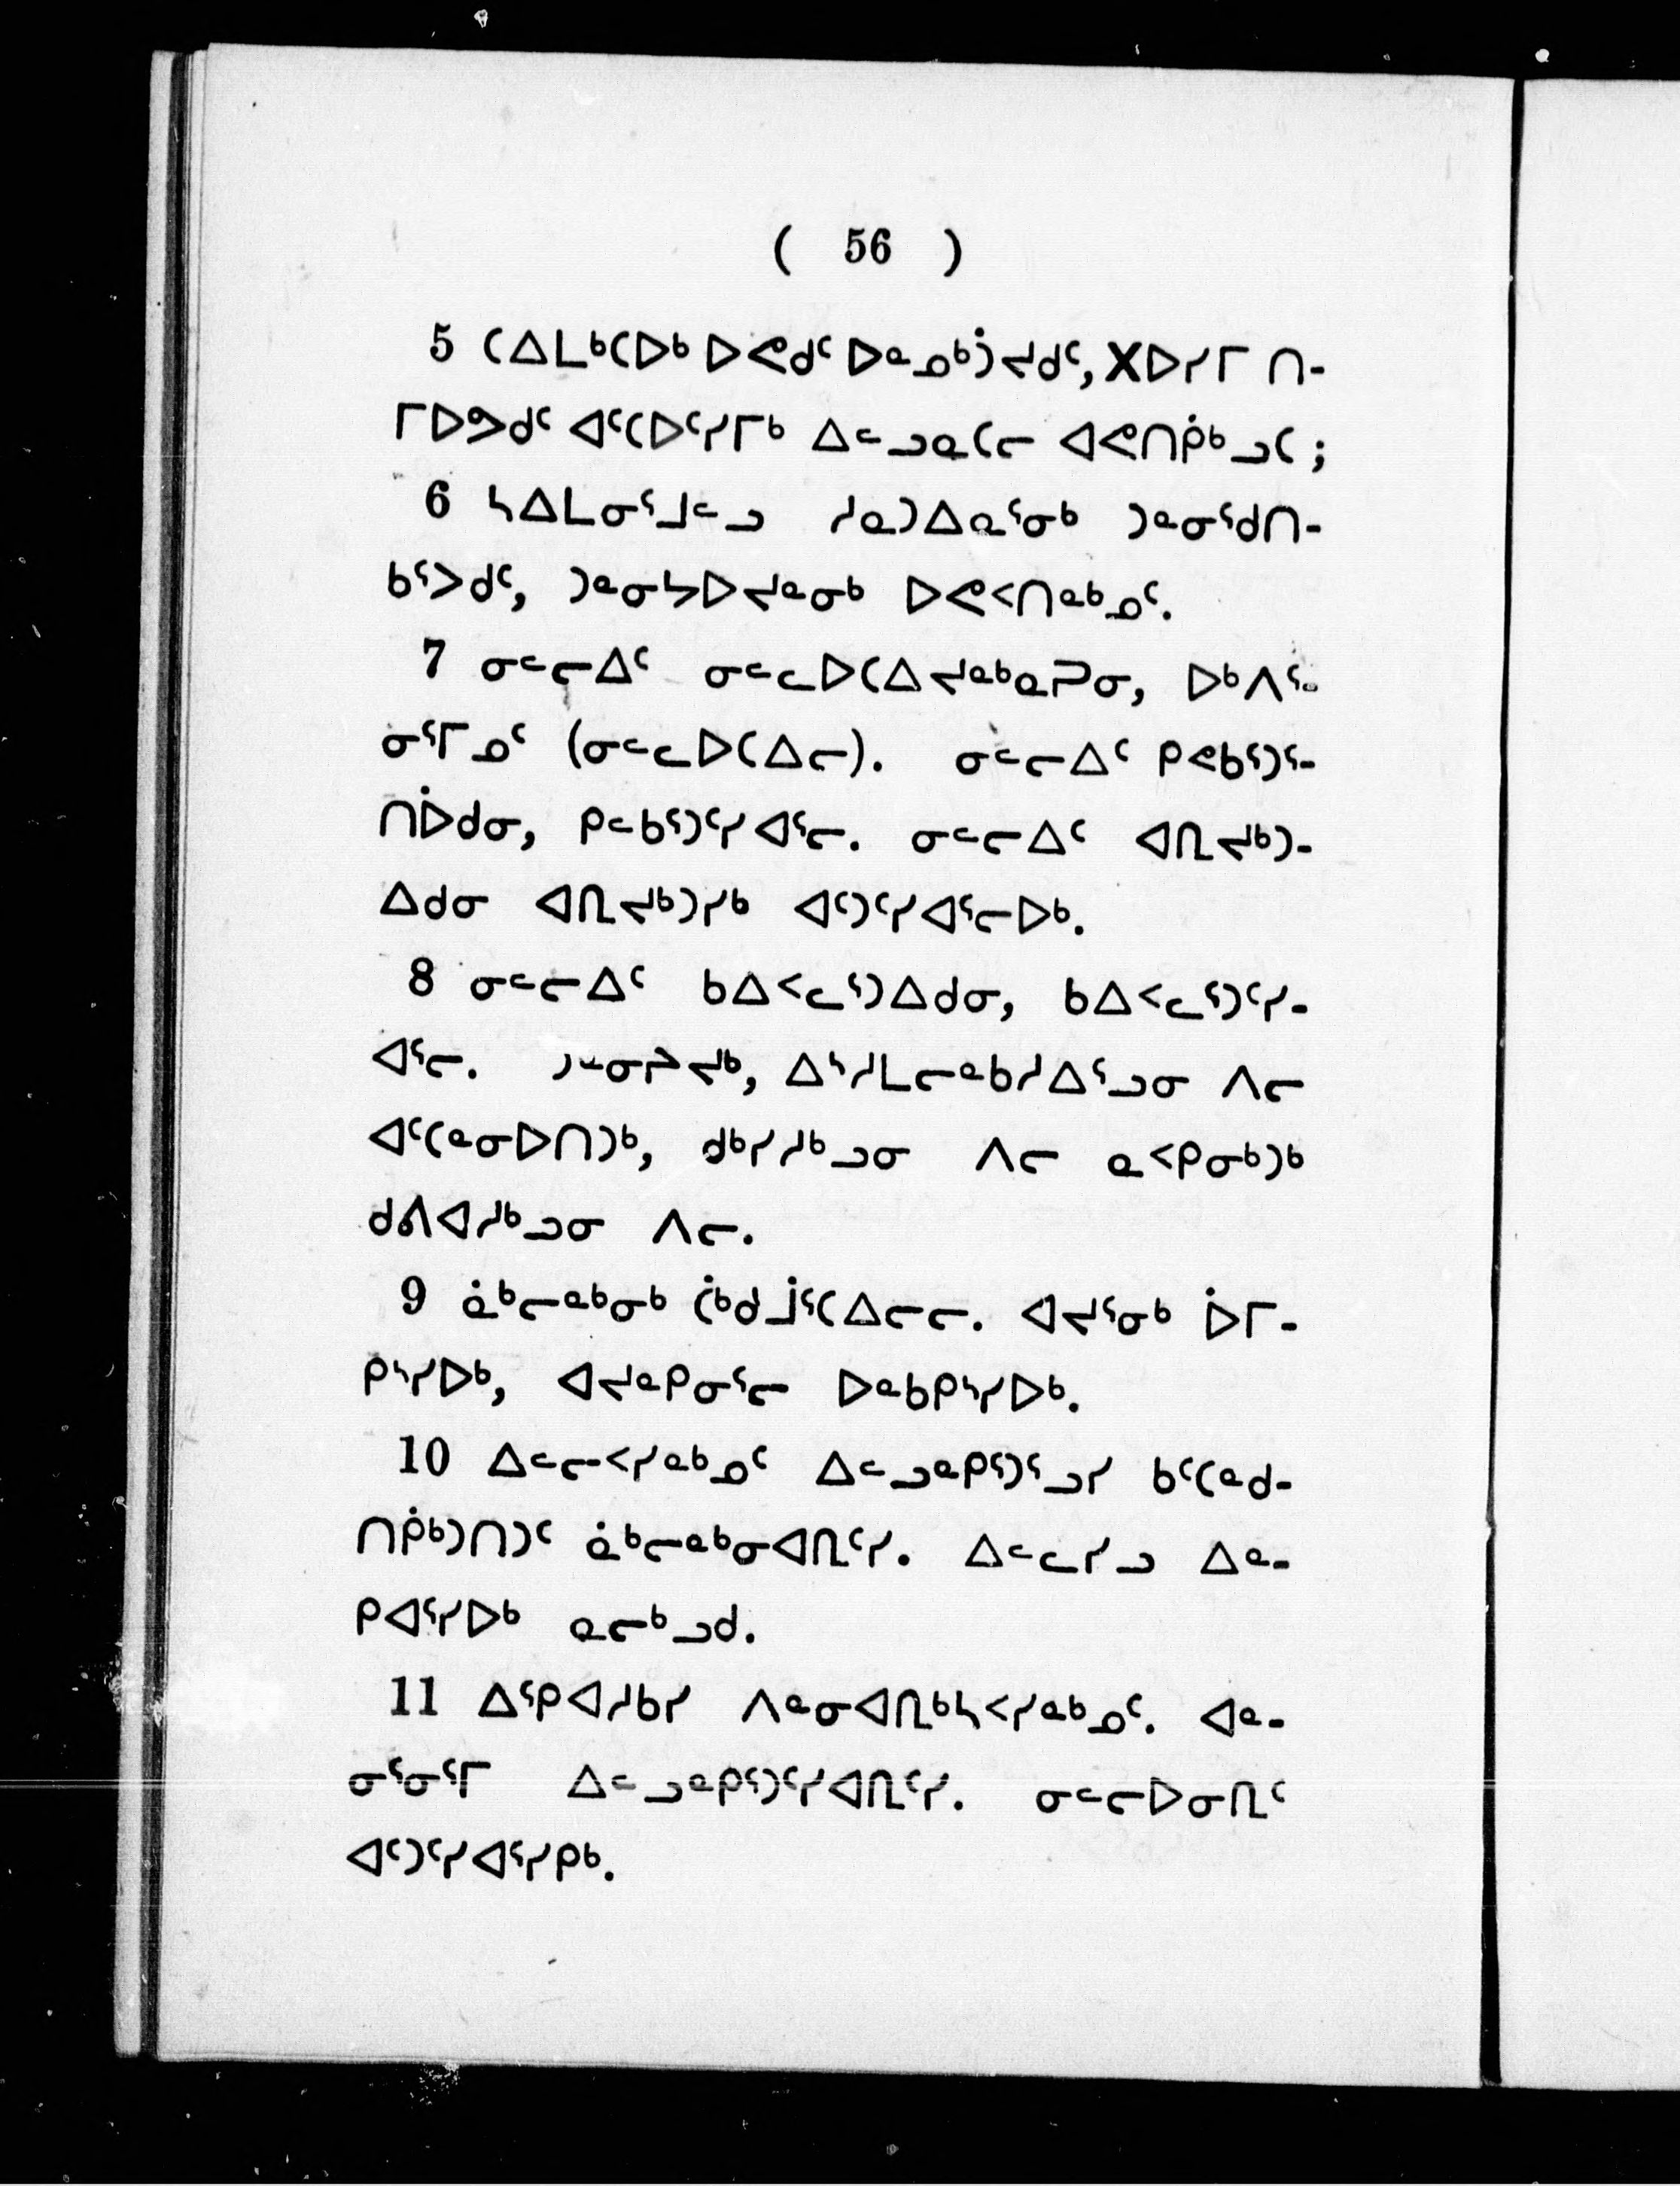 ( 56 )
5 ᑕᐃᒪᒃᑕᐅᒃ ᐅᕙᑯᑦ ᐅᓐᓄᒃᑑᔪᑯᑦ, Xᐅᓯᒥ ᑎ-
ᒥᐅᕗᑯᑦ ᐊᑦᑕᐅᑦᓯᒥᒃ ᐃᓪᓗᓇᑕᓕ ᐊᕙᑎᑮᒃᓗᑕ;
6 ᓴᐃᒪᓂᕐᒧᓪᓗ ᓱᓇᑐᐃᓇᕐᓂᒃ ᑐᓐᓂᕐᑯᑎ-
ᑲᕐᐳᑯᑦ, ᑐᓐᓂᔭᐅᔪᓐᓂᒃ ᐅᕙᑉᑎᓐᓄᑦ.
7 ᓂᓪᓕᐃᑦ ᓂᓪᓚᐅᑕᐃᔪᓐᓇᕈᓂ, ᐅᒃᐱᕐ-
ᓂᕐᒥᓄᑦ (ᓂᓪᓚᐅᑕᐃᓕ). ᓂᓪᓕᐃᑦ ᑭᕝᑲᕐᑐᕐ-
ᑎᐆᑯᓂ, ᑭᓪᑲᕐᑐᑦᓯᐊᕐᓕ. ᓂᓪᓕᐃᑦ ᐊᒌᔪᒃᑐ-
ᐃᑯᓂ ᐊᒌᔪᒃᑐᓯᒃ ᐊᑦᑐᑦᓯᐊᕐᓕᐅᒃ.
8 ᓂᓪᓕᐃᑦ ᑲᐃᑉᓚᕐᑐᐃᑯᓂ, ᑲᐃᑉᓚᕐᑐᑦᓯ-
ᐊᕐᓕ. ᑐᓐᓂᕆᔪᒃ, ᐃᔅᓱᒪᓕᓐᑲᓱᐃᕐᓗᓂ ᐱᓕ
ᐊᑦᑕᓐᓂᐅᑎᑐᒃ, ᑯᒃᓯᓱᒃᓗᓂ ᐱᓕ ᓇᑉᑭᓂᒃᑐᒃ
ᑯᕕᐊᓱᒃᓗᓂ ᐱᓕ.
9 ᓈᒃᓕᓐᓂᒃ ᑖᒃᑯᒨᕐᑕᐃᓕᓕ. ᐊᔪᕐᓂᒃ ᐆᒥ-
ᑭᔅᓯᐅᒃ, ᐊᔪᓐᑭᓂᕐᓕ ᐅᓐᑲᑭᔅᓯᐅᒃ.
10 ᐃᓪᓕᑉᓯᓐᓄᑦ ᐃᓪᓗᓐᑭᕐᑐᕐᓗᓯ ᑲᑦᑕᓐᑯ-
ᑎᑮᒃᑐᑎᑐᑦ ᓈᒃᓕᓐᓂᐊᒌᑦᓯ. ᐃᓪᓚᓯᓗ ᐃᓐ-
ᑭᐊᕐᓯᐅᒃ ᓇᓕᒃᓗᑯ.
11 ᐃᕐᑭᐊᓱᑲᓯ ᐱᓐᓂᐊᒌᒃᓴᑉᓯᓐᓄᑦ. ᐊᓐ-
ᓂᕐᓂᕐᒥ ᐃᓪᓗᓐᑭᕐᑐᑦᓯᐊᒌᑦᓯ. ᓂᓪᓕᐅᓂᒌᑦ
ᐊᑦᑐᑦᓯᐊᕐᓯᑭᒃ.